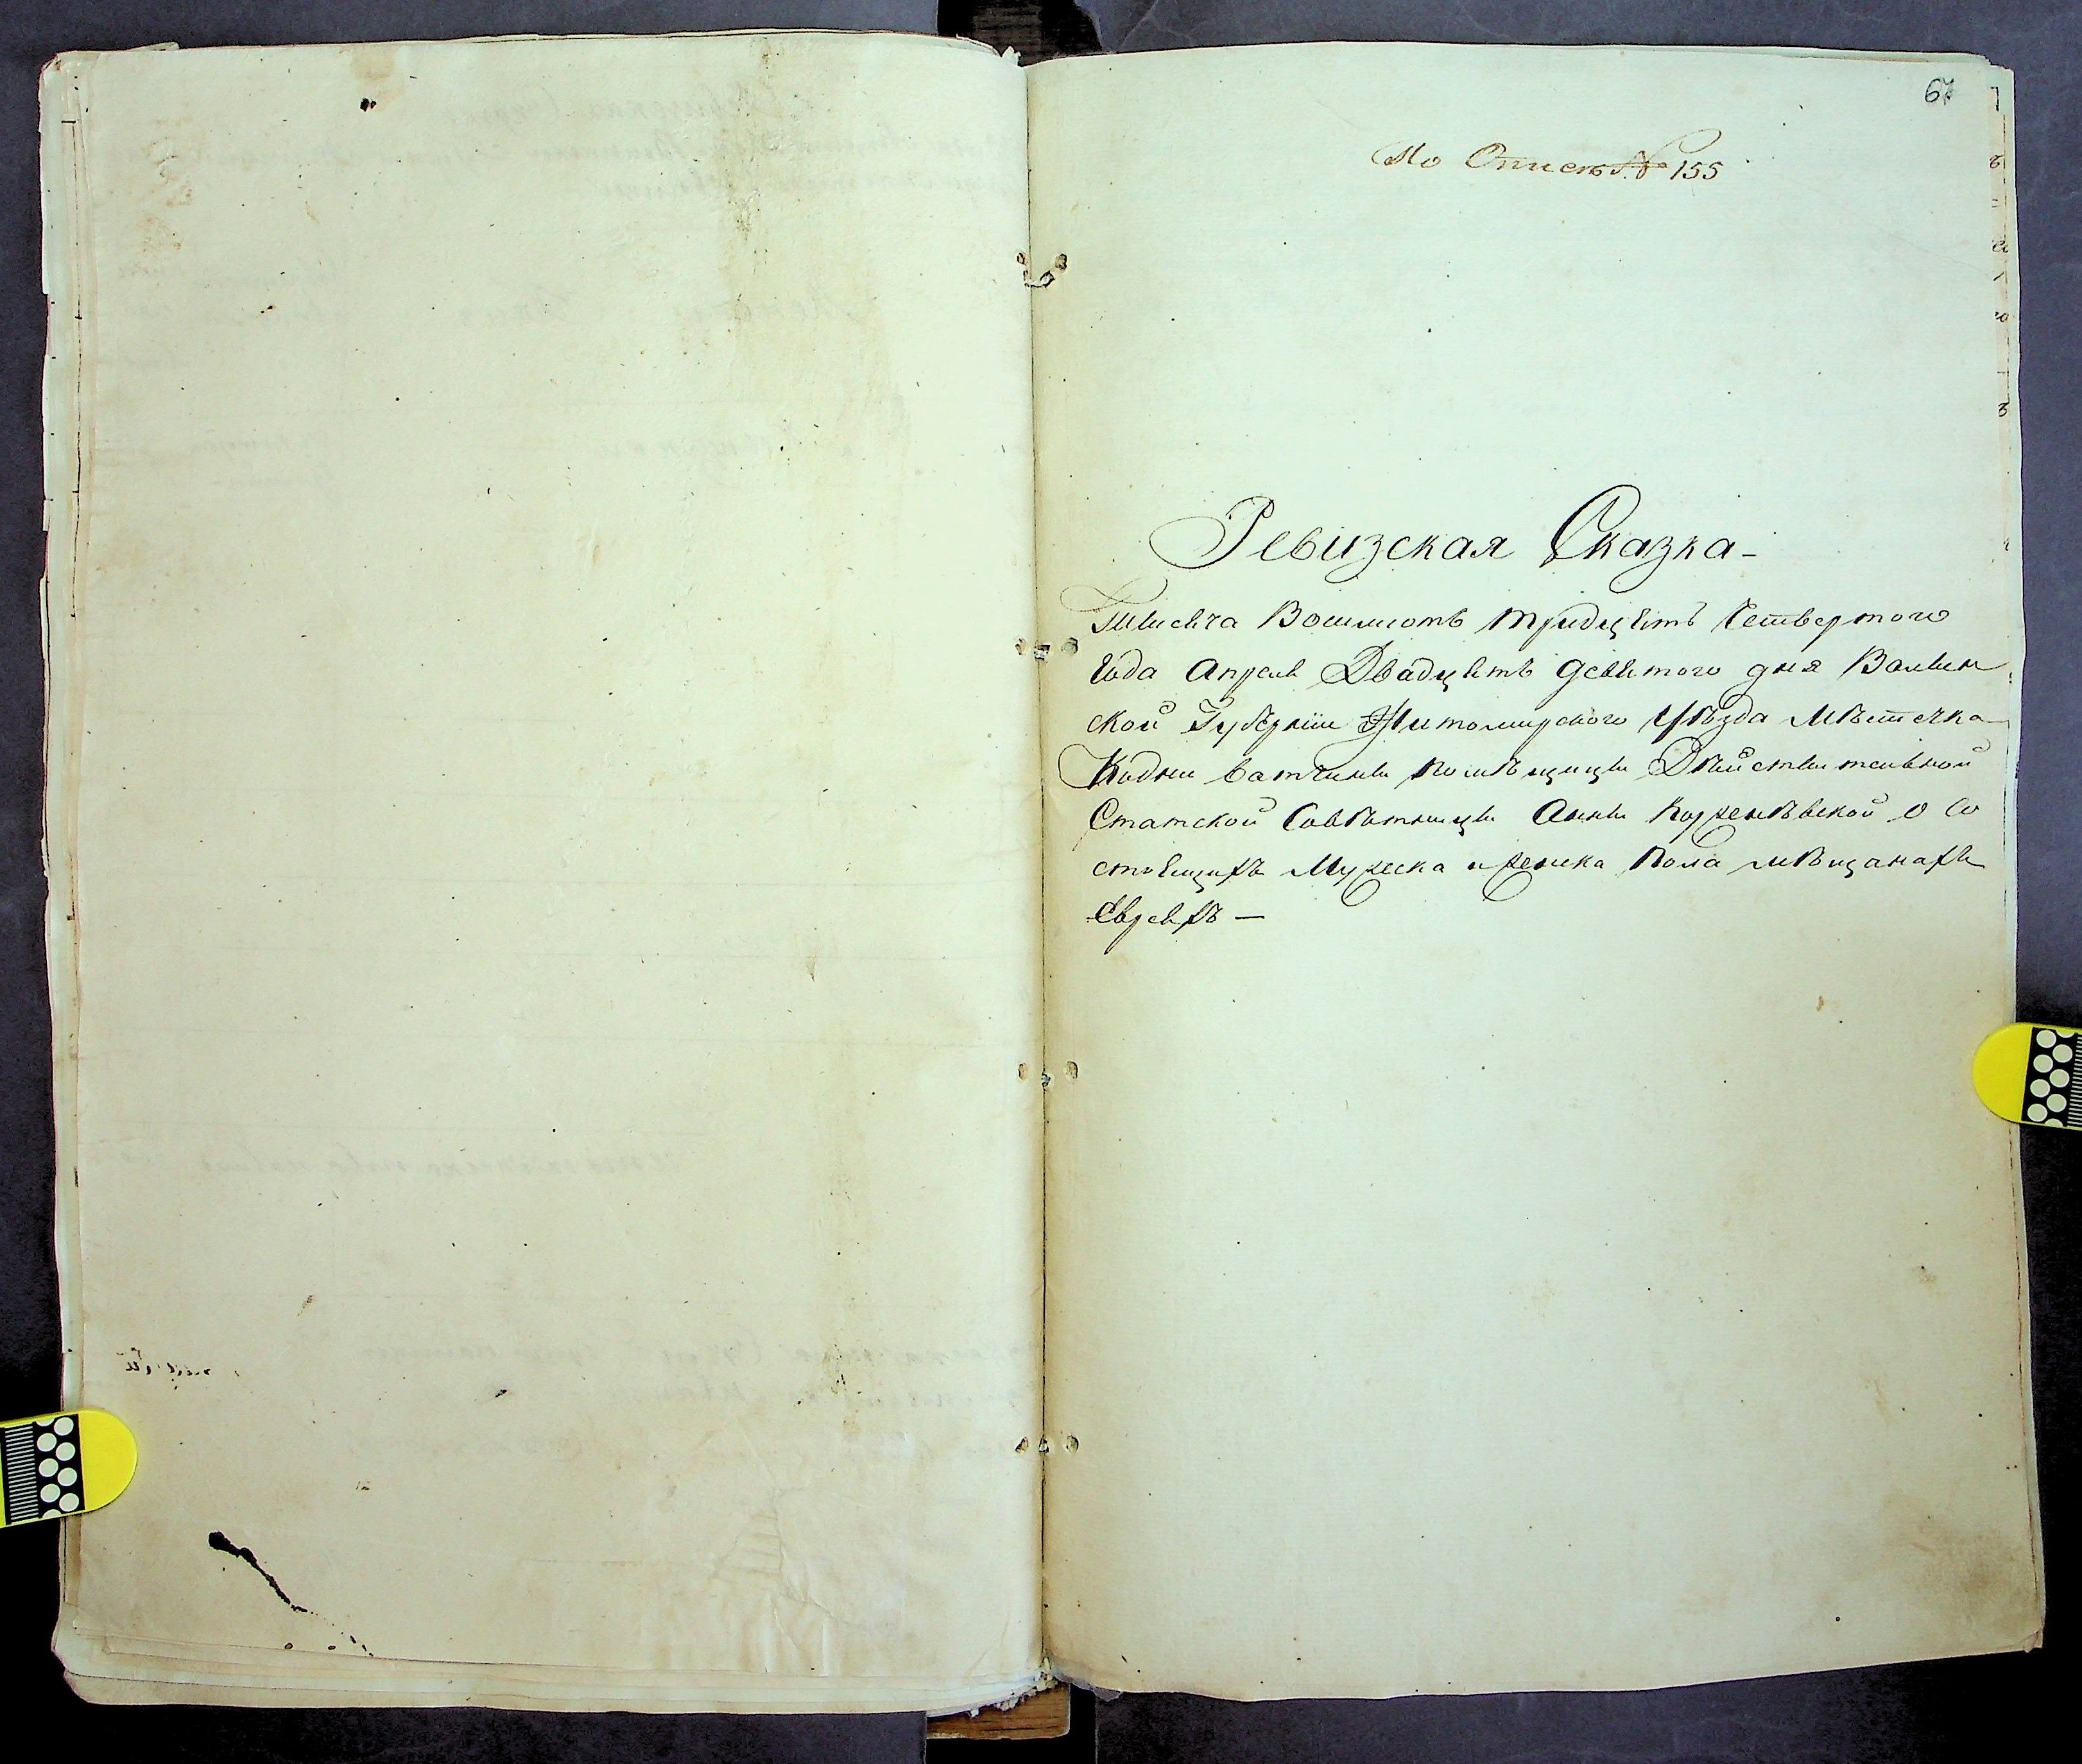 67
По Описѣ № 155
Ревизская Сказка -
Тысеча Восимсотъ тридцеть Четвертого
Года Апреля Двадцеть деветого дня Волын
ской Губернии Житомирского Уѣзда Мѣстечка
Кодни вотчины помѣщицы Дѣйствительной
Статской Совѣтницы Анны Корженѣвской о Со
стоещихъ Мужеска и женска Пола мѣщанахъ
Евреяхъ —